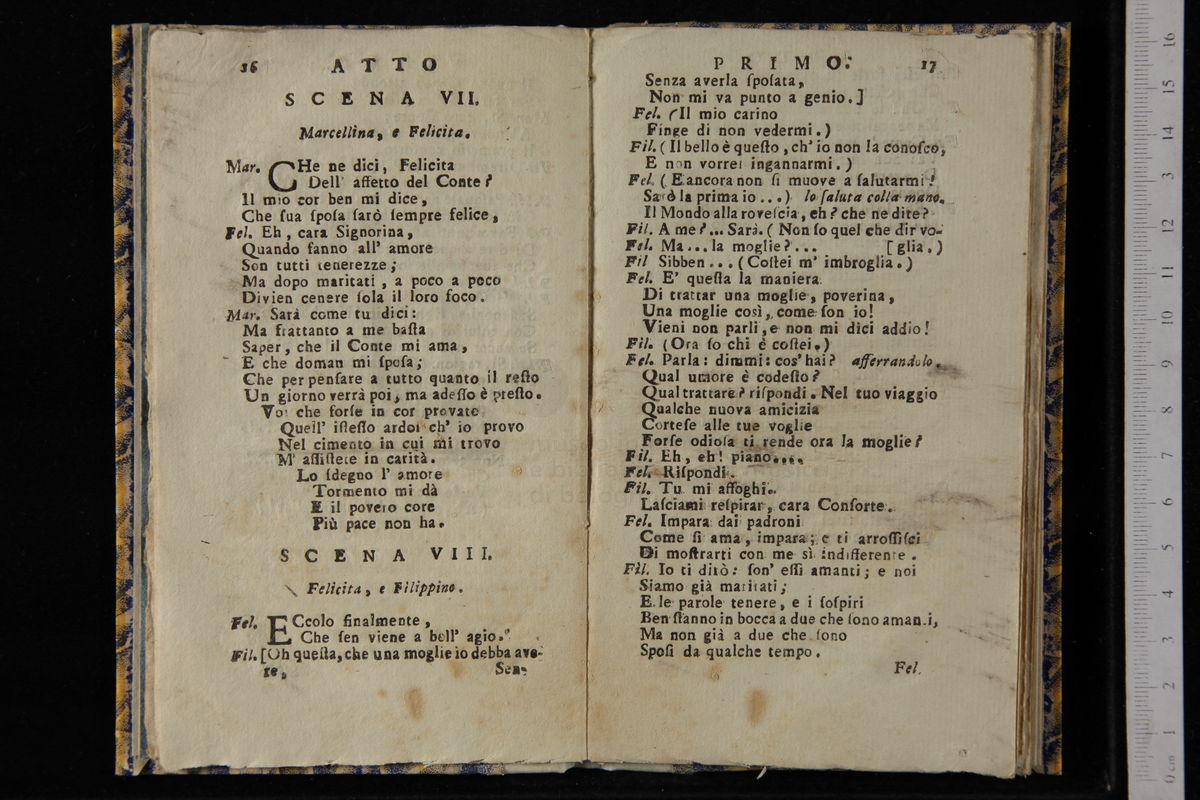 16 ATTO
SCENA VII.
Marcellina, e Felicita.
Mar. CHe ne dici, Felicita
Dell' affetto del Conte?
Il mio cor ben mi dice,
Che ſua ſpoſa ſarò ſempre felice,
Fel. Eh, cara Signorina,
Quando fanno all' amore
Son tutti tenerezze;
Ma dopo maritati, a poco a poco
Divien cenere ſola il loro foco.
Mar. Sarà come tu dici:
Ma frattanto a me baſta
Saper, che il Conte mi ama,
E che doman mi ſpoſa;
Che per penſare a tutto quanto il reſto
Un giorno verrà poi, ma adeſſo è preſto.
Voi che forſe in cor provate
Quell' iſteſſo ardor ch' io provo
Nel cimento in cui mi trovo
M' aſſiſtete in carità.
Lo ſdegno l' amore
Tormento mi dà
E il povero core
Più pace non ha.
SCENA VIII.
Felicita, e Filippino.
Fel. ECcolo finalmente,
Che ſen viene a bell' agio.
Fil. [Oh queſta, che una moglie io debba ave-
re,
Sen-
PRIMO. 17
Senza averla ſpoſata,
Non mi va punto a genio.]
Fel. (Il mio carino
Finge di non vedermi.)
Fil. (Il bello è queſto, ch' io non la conoſco,
E non vorrei ingannarmi.)
Fel. (E ancora non ſi muove a ſalutarmi!
Sarò la prima io...) lo ſaluta colla mano.
Il Mondo alla roveſcia, eh? che ne dite?
Fil. A me?... Sarà. (Non ſo quel che dir vo-
Fel. Ma... la moglie?... [glia.)
Fil Sibben... (Coſtei m' imbroglia.)
Fel. E' queſta la maniera
Di trattar una moglie, poverina,
Una moglie così, come ſon io!
Vieni non parli, e non mi dici addio!
Fil. (Ora ſo chi è coſtei.)
Fel. Parla: dimmi: cos' hai? afferrandolo.
Qual umore è codeſto?
Qual trattare? riſpondi. Nel tuo viaggio
Qualche nuova amicizia
Corteſe alle tue voglie
Forſe odioſa ti rende ora la moglie?
Fil. Eh, eh! piano....
Fel. Riſpondi.
Fil. Tu mi affoghi.
Laſciami reſpirar, cara Conſorte.
Fel. Impara dai padroni
Come ſi ama, impara; e ti arroſſiſci
Di moſtrarti con me sì indifferente.
Fil. Io ti dirò: ſon' eſſi amanti; e noi
Siamo già maritati;
E le parole tenere, e i ſoſpiri
Ben ſtanno in bocca a due che ſono amanti,
Ma non già a due che ſono
Spoſi da qualche tempo.
Fel.